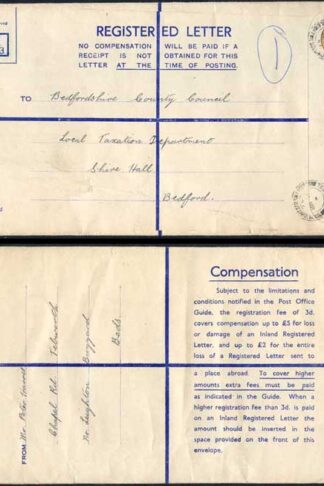 REGISTERED LETTER
NO COMPENSATION WILL BE PAID IF A
RECEIPT IS NOT OBTAINED FOR THIS
LETTER AT THE TIME OF POSTING.
TO Bedfordshire County Council
Local Taxation Department
Shire Hall
Bedford.
FROM Mr Peter
Chapel Rd. Tebworth
Nr. Leighton Buzzard
Beds
Compensation
Subject to the limitations and
conditions notified in the Post Office
Guide, the registration fee of 3d.
covers compensation up to £5 for loss
or damage of an Inland Registered
Letter, and up to £2 for the entire
loss of a Registered Letter sent to
a place abroad. To cover higher
amounts extra fees must be paid
as indicated in the Guide. When a
higher registration fee than 3d. is paid
on an Inland Registered Letter the
amount should be inserted in the
space provided on the front of this
envelope.